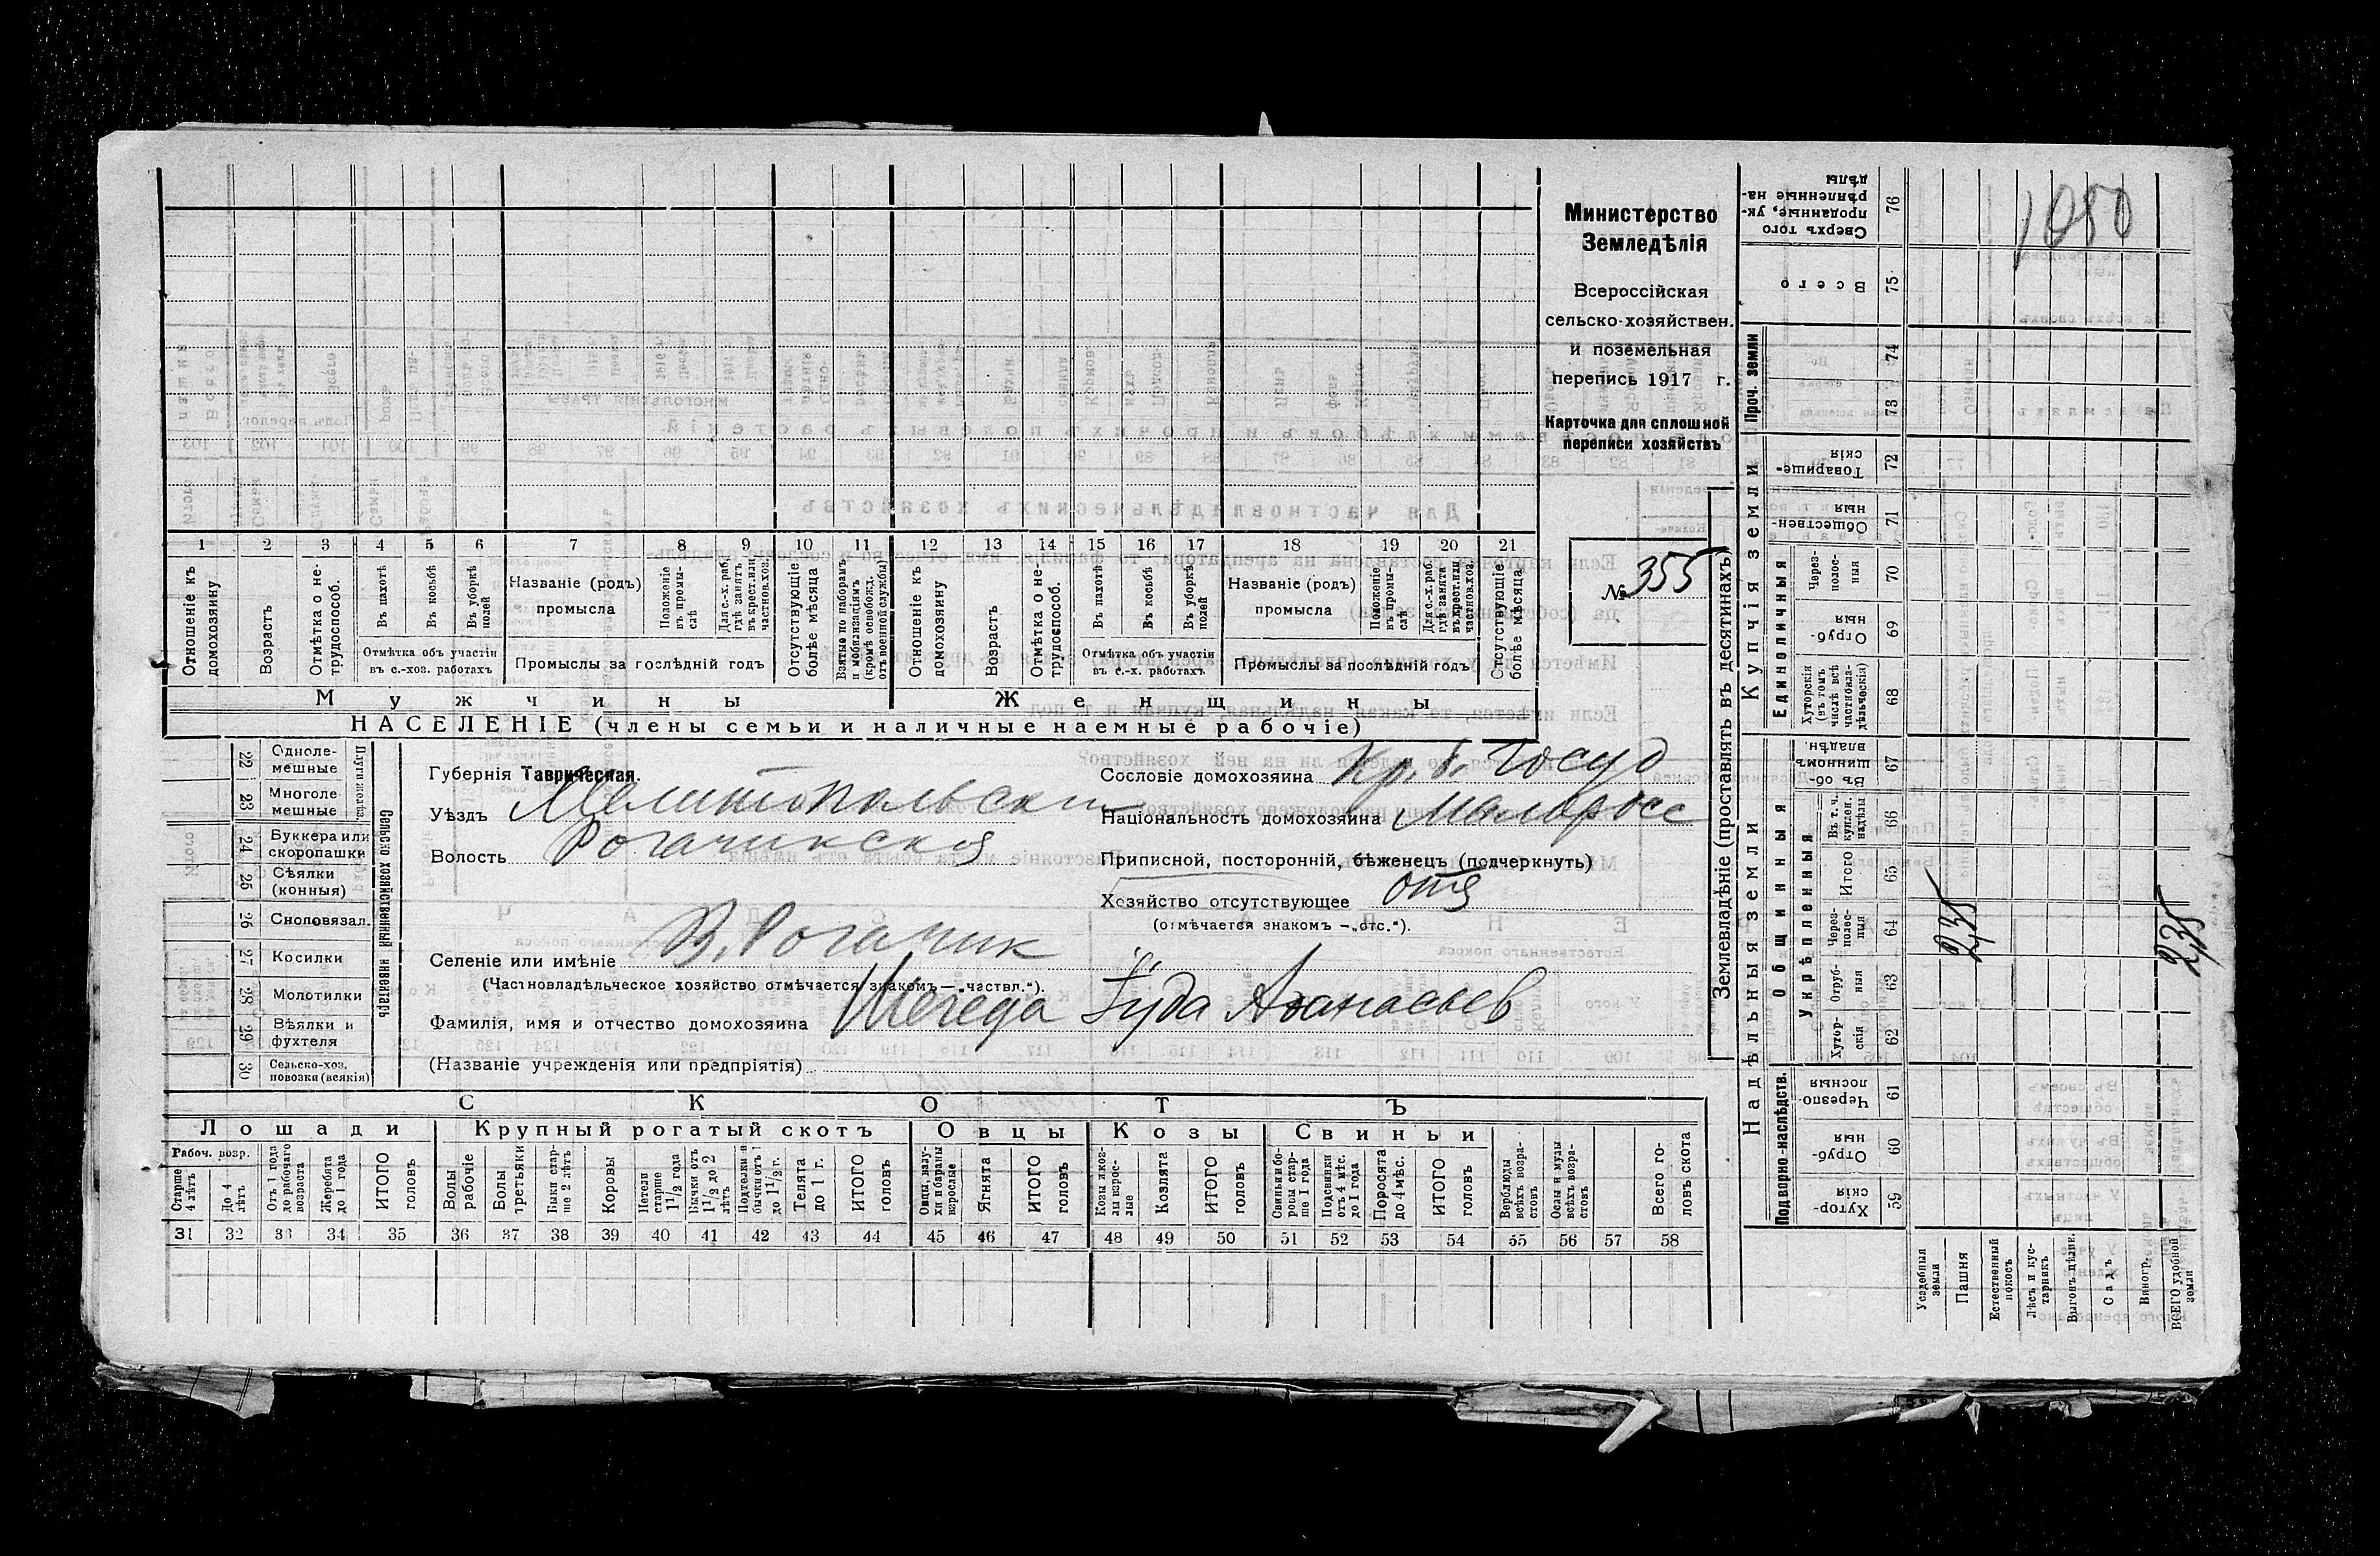 1 2 3 4 5 6 7 8 9 10 11 12 13 14 15 16 17 18 19 20 21
Отношеніе къ домохозяину
Возрастъ
Отмѣтка о не-трудоспособ.
Въ пахотѣ
Въ косьбѣ
Въ уборкѣ полей
Отмѣтка объ участіи
въ с.-хоз. работахъ
Названіе (родъ)
промысла
Положеніе въ промы-слѣ
Для с.-х. раб. гдѣ занятъ въ крест. или частнов. хоз.
Промыслы за послѣдній годъ
Отсутствующіе болѣе мѣсяца
Взятые по наборамъ и мобилизаціямъ (кромѣ освобожд. отъ военной службы)
Отношеніе къ домохозяину
Возрастъ
Отмѣтка о не-трудоспособ.
Въ пахотѣ
Въ косьбѣ
Въ уборкѣ полей
Отмѣтка объ участіи
въ с.-х. работахъ
Названіе (родъ)
промысла
Положеніе въ промы-слѣ
Для с.-х. раб. гдѣ занята въ крест. или частнов. хоз.
Промыслы за послѣдній годъ
Отсутствующіе болѣе мѣсяца
Мужчины Женщины
НАСЕЛЕНІЕ (члены семьи и наличные наемные рабочіе)
Министерство
Земледѣлія
Всероссійская
сельско-хозяйствен.
и поземельная
перепись 1917 г.
Карточка для сплошной
переписи хозяйствъ
№ 355
22 Одноле-мешные
23 Многоле-мешные
Плуги желѣз.
24 Буккера или скоропашки
25 Сѣялки (конныя)
26 Сноповязал.
27 Косилки
28 Молотилки
29 Вѣялки и фухтеля
30 Сельско-хоз. повозки (всякія)
Сельско хозяйственный инвентарь
Губернія Таврическая.
Уѣздъ Мелитопольскі
Волость Рогачикская
Селеніе или имѣніе В. Рогачик
(Частновладѣльческое хозяйство отмѣчается знакомъ—„частвл.“).
Фамилія, имя и отчество домохозяина Шегеда Іуда Афанасьев
(Названіе учрежденія или предпріятія)
Сословіе домохозяина Кр. б. Госуд
Національность домохозяина Малоросс
Приписной, посторонній, бѣженец (подчеркнуть)
Хозяйство отсутствующее отс
(отмѣчается знакомъ —„отс.“).
СКОТЪ
Лошади Крупный рогатый скотъ Овцы Козы Свиньи
Рабоч. возр.
Старше 4 лѣтъ
До 4 лѣтъ
Отъ 1 года до рабочаго возраста
Жеребята до 1 года
ИТОГО головъ
Волы рабочіе
Волы третьяки
Быки стар-ше 2 лѣтъ
Коровы
Нетели старше 1 1/2 года
Бычки отъ 1 1/2 до 2 лѣтъ
Подтелки и бычки отъ до 1 1/2 г.
Телята до 1 г.
ИТОГО головъ
Овцы, валу-хи и бараны взрослые
Ягнята
ИТОГО головъ
Козы и коз-лы взрос-лые
Козлята
ИТОГО головъ
Свиньи и бо-ровы стар-ше 1 года
Подсвинки отъ 4 мѣс. до 1 года
Поросята до 4 мѣс.
ИТОГО головъ
Верблюды всѣхъ возра-стовъ
Ослы и мулы всѣхъ возра-стовъ
Всего го-ловъ скота
31 32 33 34 35 36 37 38 39 40 41 42 43 44 45 46 47 48 49 50 51 52 53 54 55 56 57 58
Землевладѣніе (проставлять въ десятинахъ)
Надѣльныя земли Купчія земли Проч. земли
Подворно-наслѣдств.
Общинныя
Укрѣпленныя
Единоличныя
Хутор-скія 59
Отруб-ныя 60
Черезпо-лосныя 61
Хутор-скія 62
Отруб-ныя 63
Через-полос-ныя 64
Итого 65
Въ т. ч. куплен. надѣлы 66
Въ об-щинномъ владѣн. 67
Хуторскія (въ томъ числѣ всѣ частновла-дѣльческія) 68
Отруб-ныя 69
Через-полос-ныя 70
Обществен-ныя 71
Товарище-скія 72
73
74
Всего 75
Сверхъ того проданные, ук-рѣпленные на-дѣлы 76
1050
2,35
2,35
Усадебныя земли
Пашня
Естественный покосъ
Лѣсъ и кус-тарникъ
Выгонъ цѣлин.
Садъ
Виногр.
ВСЕГО удобной земли